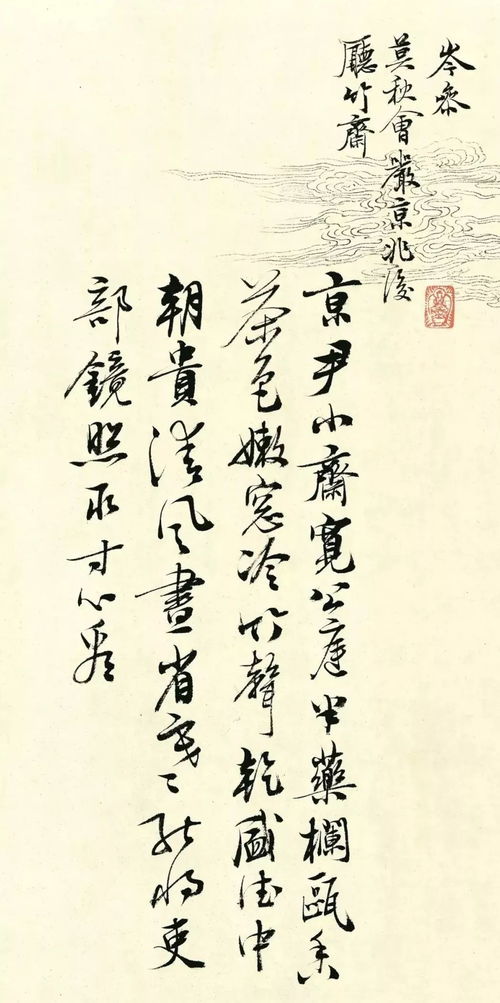 岑參
莫秋會嚴京兆後
廳竹齋
京尹小齋寬公庭半藥欄甌香
茶色嫩窓冷竹聲乾盛德中
朝貴清風畫省寒能將吏
部鏡照取寸心看